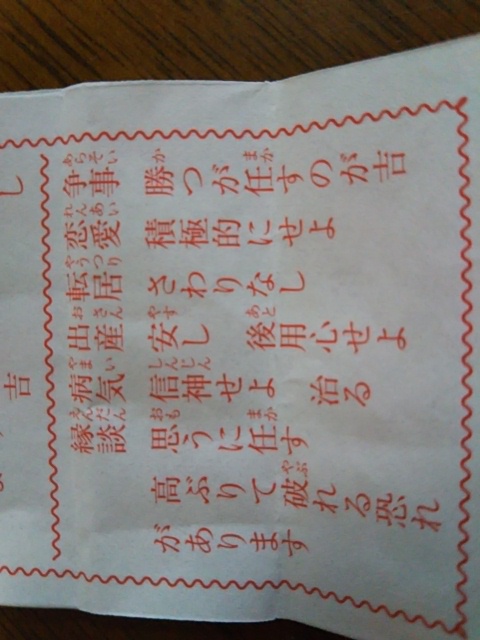 し
吉
争事 勝つが任すのが吉
恋愛 積極的にせよ
転居 さわりなし
出産 安し 後用心せよ
病気 信神せよ 治る
縁談 思うに任す
高ぶりて破れる恐れ
があります